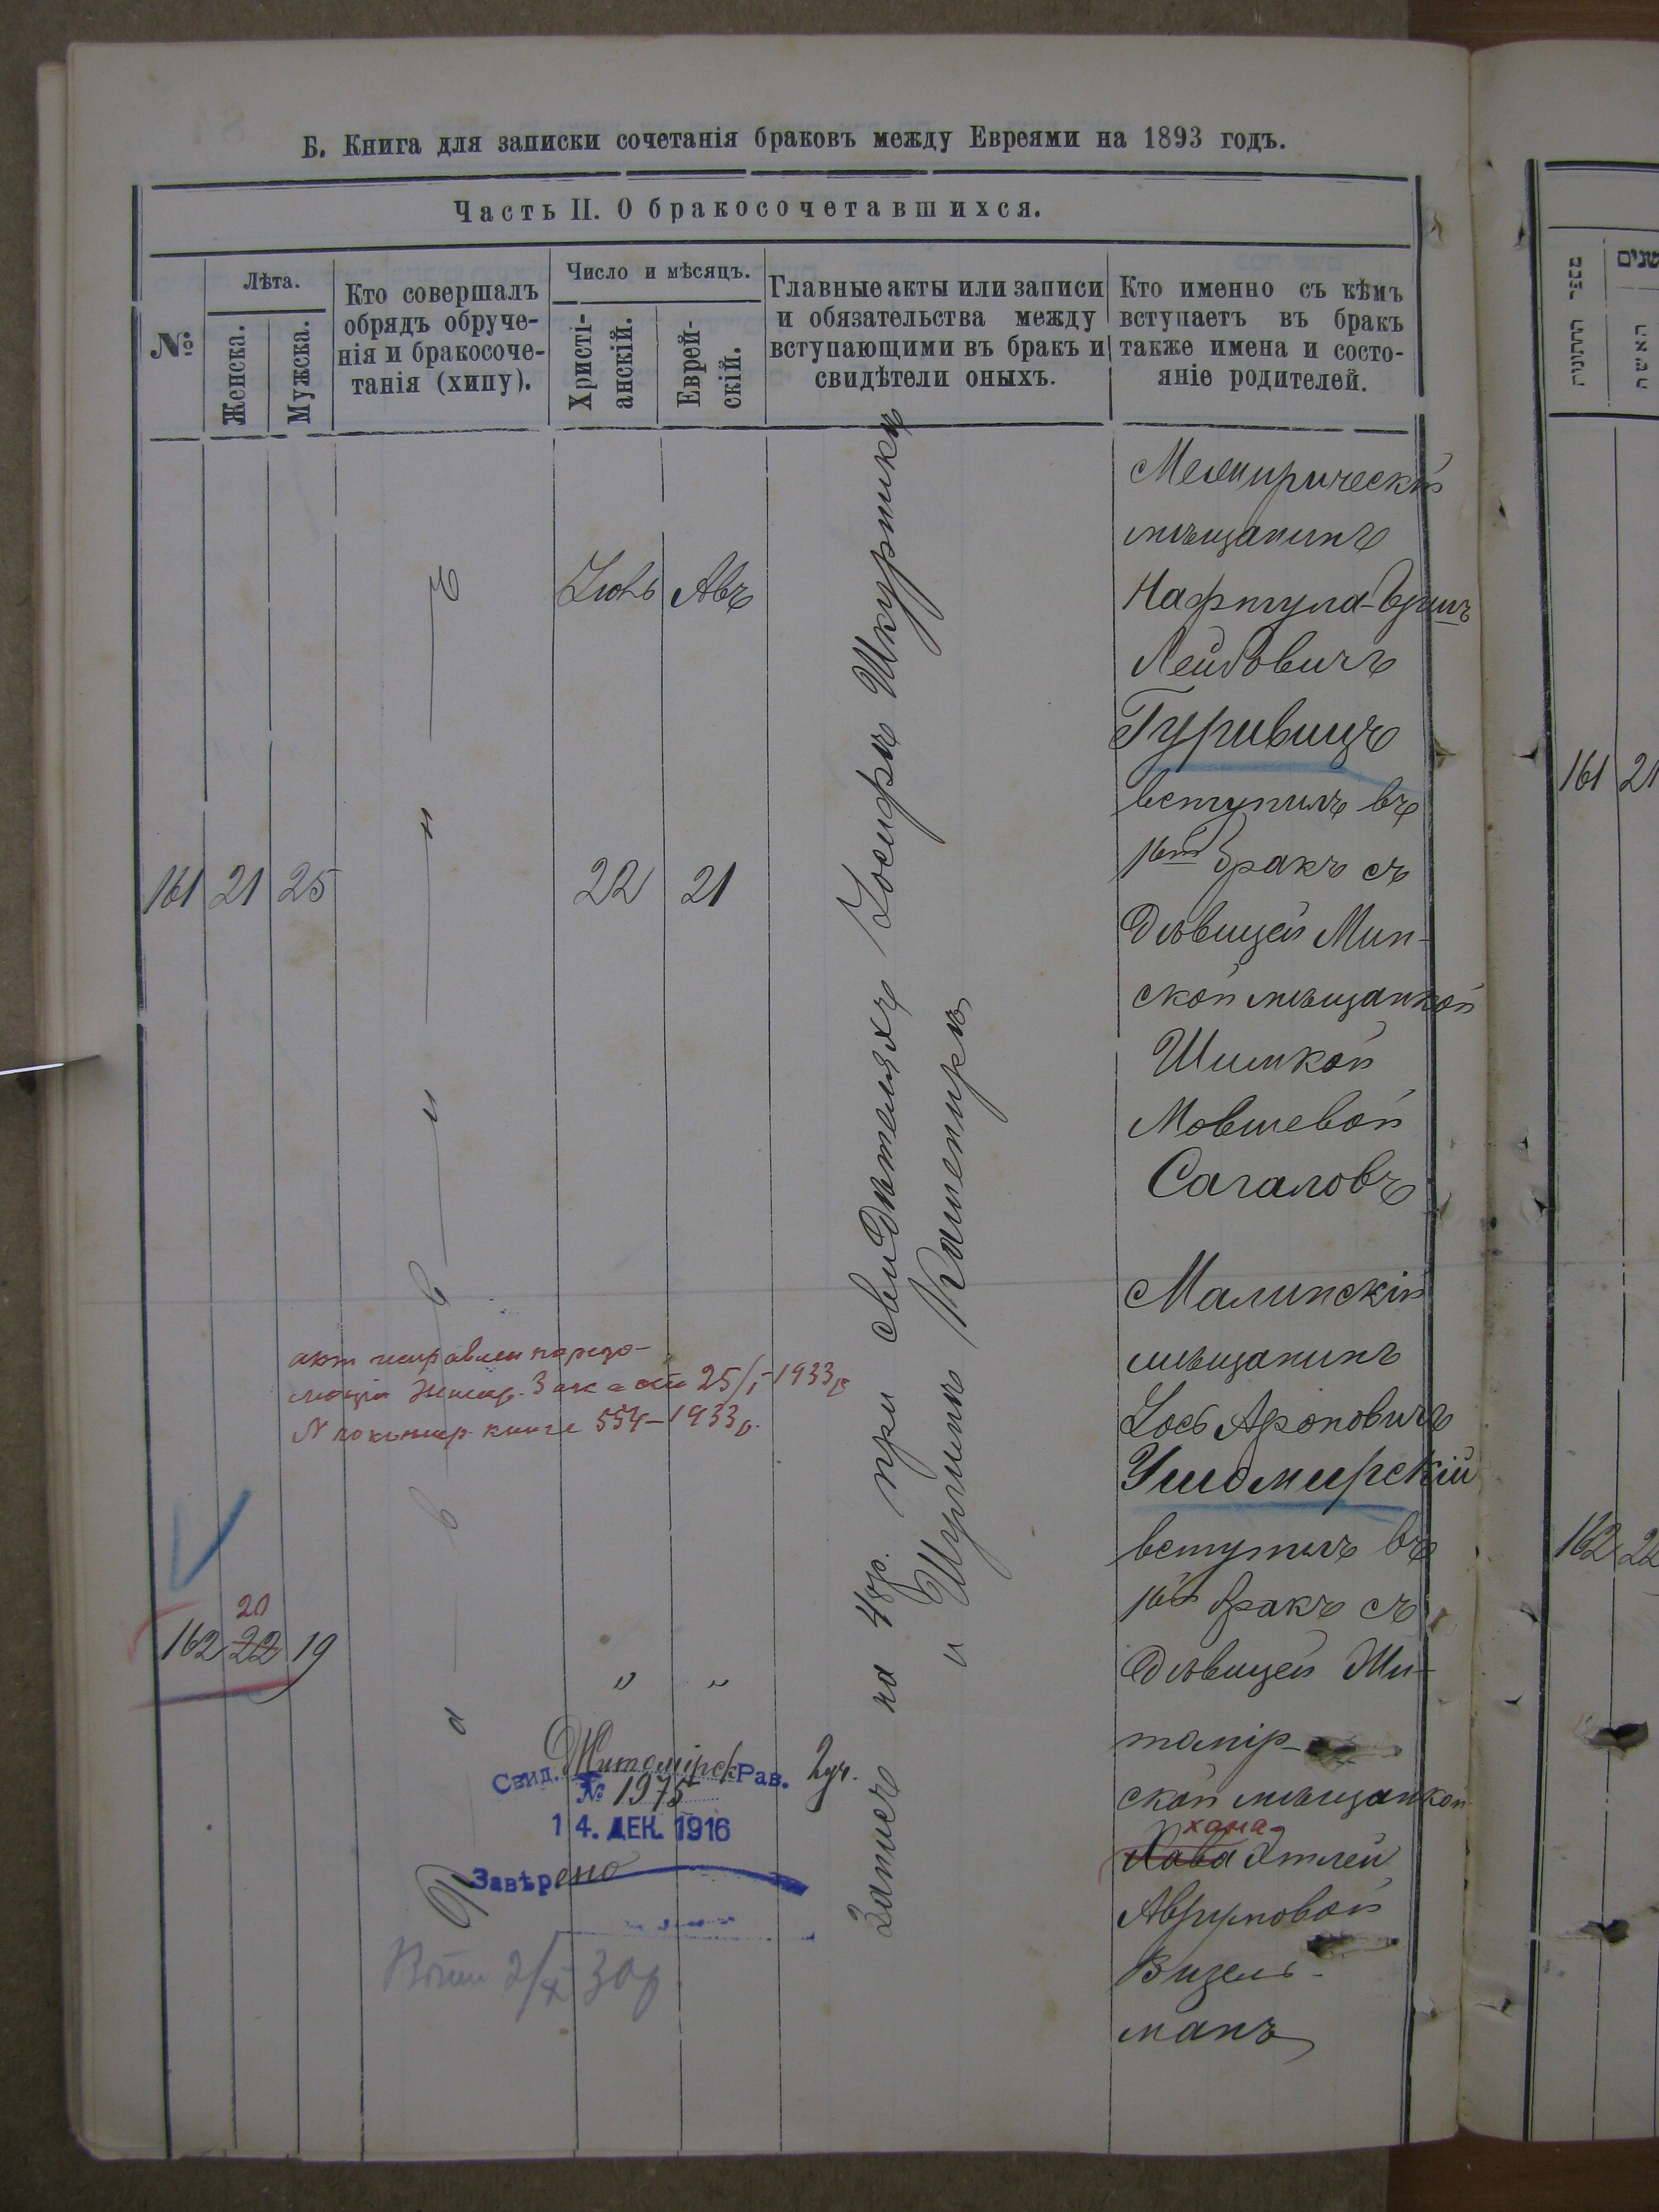 Б. Книга для записки сочетанія браковъ между Евреями на 1893 годъ.
Часть II. О бракосочетавшихся.
№
Лѣта.
Женска.
Мужска.
Кто совершалъ
обрядъ обруче-
нія и бракосоче-
танія (хипу).
Число и мѣсяцъ.
Христі-
анскій.
Еврей-
скій.
Главные акты или записи
и обязательства между
вступающими въ бракъ и
свидѣтели оныхъ.
Кто именно съ кѣмъ
вступаетъ въ бракъ
также имена и состо-
яніе родителей.
Раввинъ
Запись на 48р. при свидѣтеляхъ Іосифѣ Шкурникѣ
и Шулимѣ
Іюль Авъ
161 21 25 22 21
мѣщанинъ
Нафтула-Гершъ
Лейбовичъ
Гуривицъ
вступилъ въ
1ый бракъ съ
дѣвицей Мин-
ской мѣщанкой
Шимкой
Мовшевой
Сагаловъ
Малинскій
мѣщанинъ
Іось Ароновичъ
Ушомирскій
вступилъ въ
1ый бракъ съ
дѣвицей Жи-
томір-
ской мѣщанкой
хана-
Хава Этлей
Аврумовой
Визель-
манъ
акт исправлен
25/I-1933р
книге 554-1933р.
20
162 22 19 " "
Свид. Житомірск Рав.
№ 1975
14. ДЕК. 1916
Завѣрено
30р
ספר החתונות
שנים
האישה
161 21
162 22